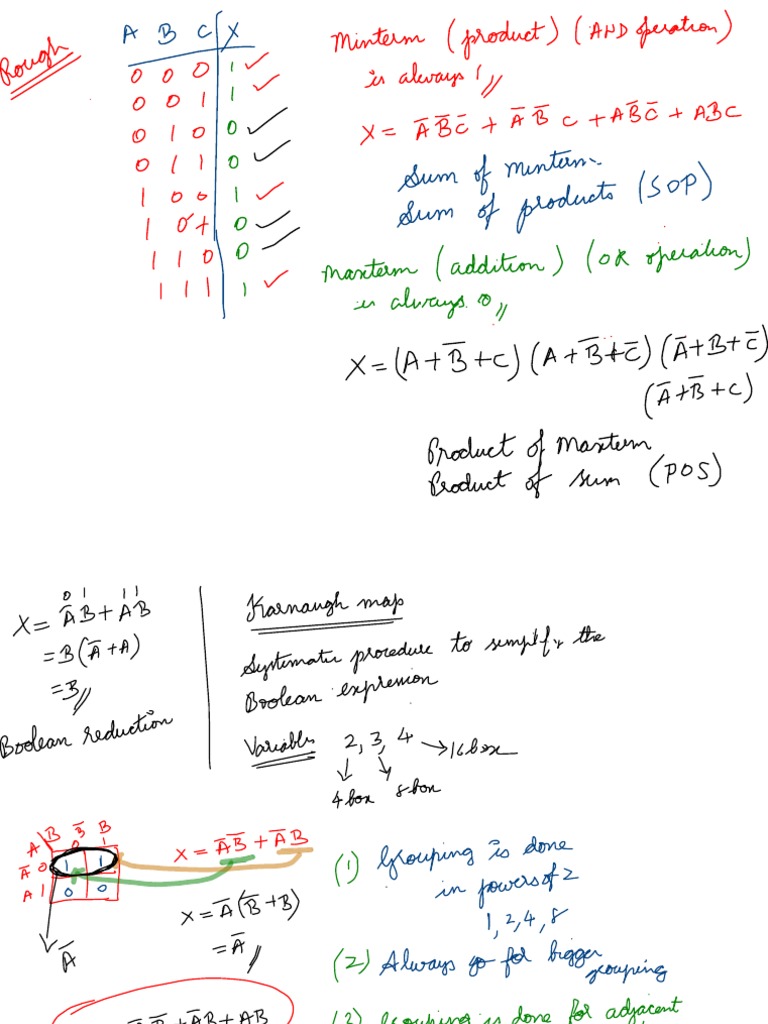 Rough
A B C X
0 0 0 1
0 0 1 1
0 1 0 0
0 1 1 0
1 0 0 1
1 0 1 0
1 1 0 0
1 1 1 1
Minterm (product) (AND operation)
is always 1
X = A̅B̅C̅ + A̅ B̅ C + AB̅C̅ + ABC
Sum of minterm
Sum of products (SOP)
Maxterm (addition) (OR operation)
is always 0
X = (A + B̅ + C) (A + B̅ + C̅) (A̅ + B + C̅)
(A̅ + B̅ + C)
Product of Maxterm
Product of sum (POS)
0 1 1 1
X = A̅B + AB
= B(A̅ + A)
= B
Boolean reduction
Karnaugh map
Systematic procedure to simplify the
Boolean expression
Variables 2, 3, 4 → 16 box
4 box 8 box
A B B̅ B
0 1
A̅ 0 1 1
A 1 0 0
A̅
X = A̅B̅ + A̅B
X = A̅(B̅ + B)
= A̅
(1) Grouping is done
in powers of 2
1, 2, 4, 8
(2) Always go for bigger
grouping
A̅B̅ + A̅B + AB
(3) Grouping is done for adjacent